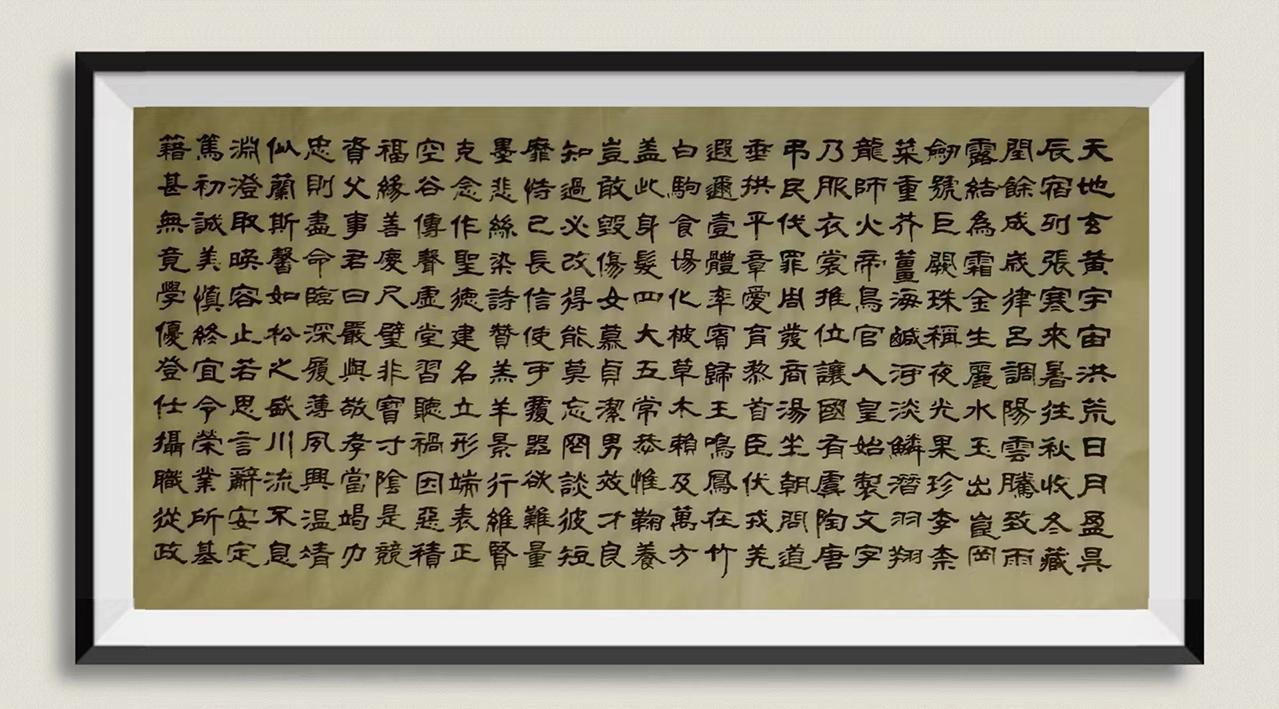 天地玄黃宇宙洪荒日月盈昃
辰宿列張寒來暑往秋收冬藏
閏餘成歲律呂調陽雲騰致雨
露結為霜金生麗水玉出崑岡
劒號巨闕珠稱夜光果珍李柰
菜重芥薑海鹹河淡鱗潛羽翔
龍師火帝鳥官人皇始製文字
乃服衣裳推位讓國有虞陶唐
弔民伐罪周發商湯坐朝問道
垂拱平章愛育黎首臣伏戎羌
遐邇壹體率賓歸王鳴鳳在竹
白駒食場化被草木賴及萬方
盖此身髮四大五常恭惟鞠養
豈敢毀傷女慕貞潔男效才良
知過必改得能莫忘罔談彼短
靡恃己長信使可覆器欲難量
墨悲絲染詩贊羔羊景行維賢
克念作聖德建名立形端表正
空谷傳聲虛堂習聽禍因惡積
福緣善慶尺璧非寶寸陰是競
資父事君曰嚴與敬孝當竭力
忠則盡命臨深履薄夙興温清
似蘭斯馨如松之盛川流不息
淵澄取暎容止若思言辭安定
篤初誠美慎終宜令榮業所基
籍甚無竟學優登仕攝職從政